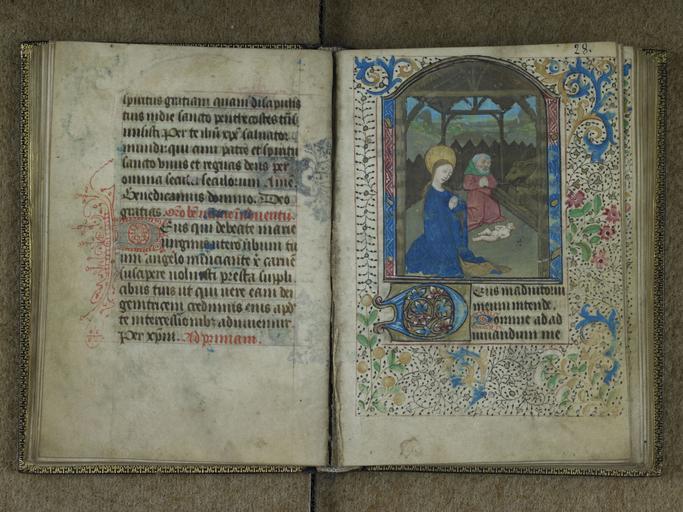 spiritus gratiam quam discipulis
tuis in die sancto penthecostes
misisti. Per te ihū xp̄e saluator
mundi: qui cum patre et spiritu
sancto viuis et regnas deus per
omnia secula seculorum. Ame
Benedicamus domino. Deo
gratias.
Deus qui de beate marie
virginis utero v̄bum tu
um angelo nunciante carnē
suscipere voluisti presta suppli
cibus tuis ut qui vere eam dei
genitricem credimus eius apd'
te intercessionibz adiuuemur.
Per xp̄m. Ad primam.
28.
Deus in adiutoriū
meum intende.
Domine ad ad
iuuandum me